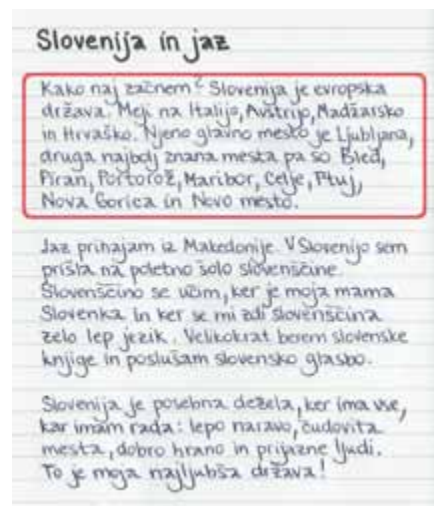 Slovenija in jaz
Kako naj začnem? Slovenija je evropska
država. Meji na Italijo, Avstrijo, Madžarsko
in Hrvaško. Njeno glavno mesto je Ljubljana,
druga najbolj znana mesta pa so Bled,
Piran, Portorož, Maribor, Celje, Ptuj,
Nova Gorica in Novo mesto.
Jaz prihajam iz Makedonije. V Slovenijo sem
prišla na poletno šolo slovenščine.
Slovenščino se učim, ker je moja mama
Slovenka in ker se mi zdi slovenščina
zelo lep jezik. Velikokrat berem slovenske
knjige in poslušam slovensko glasbo.
Slovenija je posebna dežela, ker ima vse,
kar imam rada: lepo naravo, čudovita
mesta, dobro hrano in prijazne ljudi.
To je moja najljubša država!